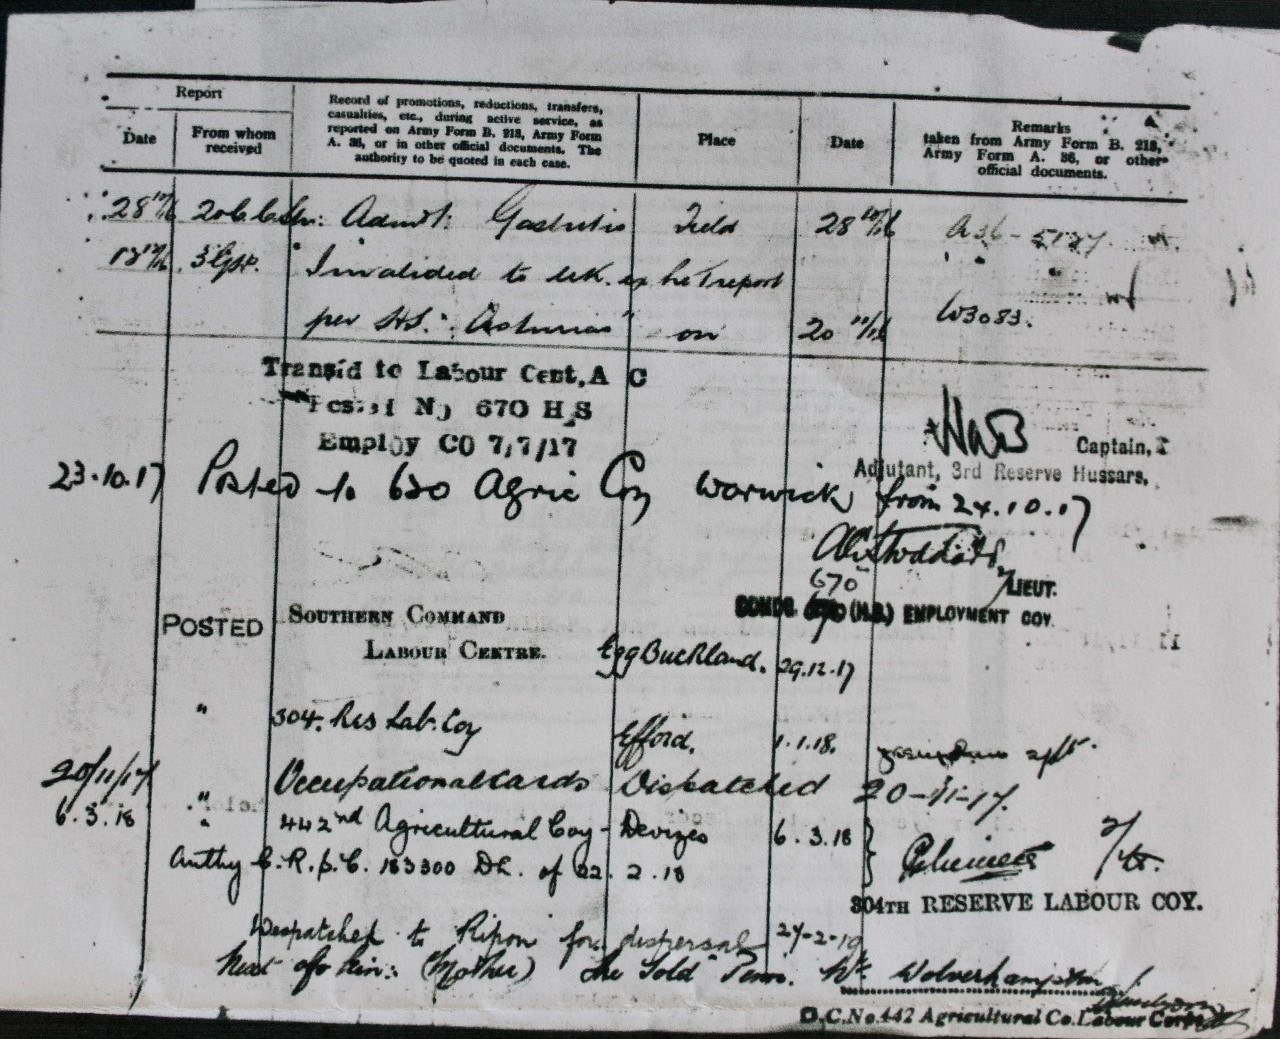 Report
Date
From whom received
Record of promotions, reductions, transfers, casualties, etc., during active service, as reported on Army Form B. 213, Army Form A. 36, or in other official documents. The authority to be quoted in each case.
Place
Date
Remarks taken from Army Form B. 213, Army Form A. 36, or other official documents.
28 Admt: Gastritis Field 28 A36 - 5127
Invalided to UK. ex Le Treport
per H.S. "Asturias" on 20 11/16 W3083.
Transf'd to Labour Cent, A C
Posted No 670 H S
Employ CO 7/7/17
Captain,
Adjutant, 3rd Reserve Hussars,
23.10.17 Posted to 620 Agric Coy Warwick from 24.10.17
670 LIEUT.
COMDG. (H.S.) EMPLOYMENT COY.
POSTED SOUTHERN COMMAND
LABOUR CENTRE. Egg Buckland. 29.12.17
" 304. Res Lab. Coy Efford. 1.1.18.
20/11/17 " Occupational Cards Dispatched 20-11-17.
6.3.18 " 442nd Agricultural Coy - Devizes 6.3.18
Authy C.R.S.C. 183300 DL. of 22.2.18
304TH RESERVE LABOUR COY.
Despatched to Ripon for dispersal 27-2-19
Next of Kin: (Mother) Wolverhampton
O.C. No. 442 Agricultural Co. Labour Corps